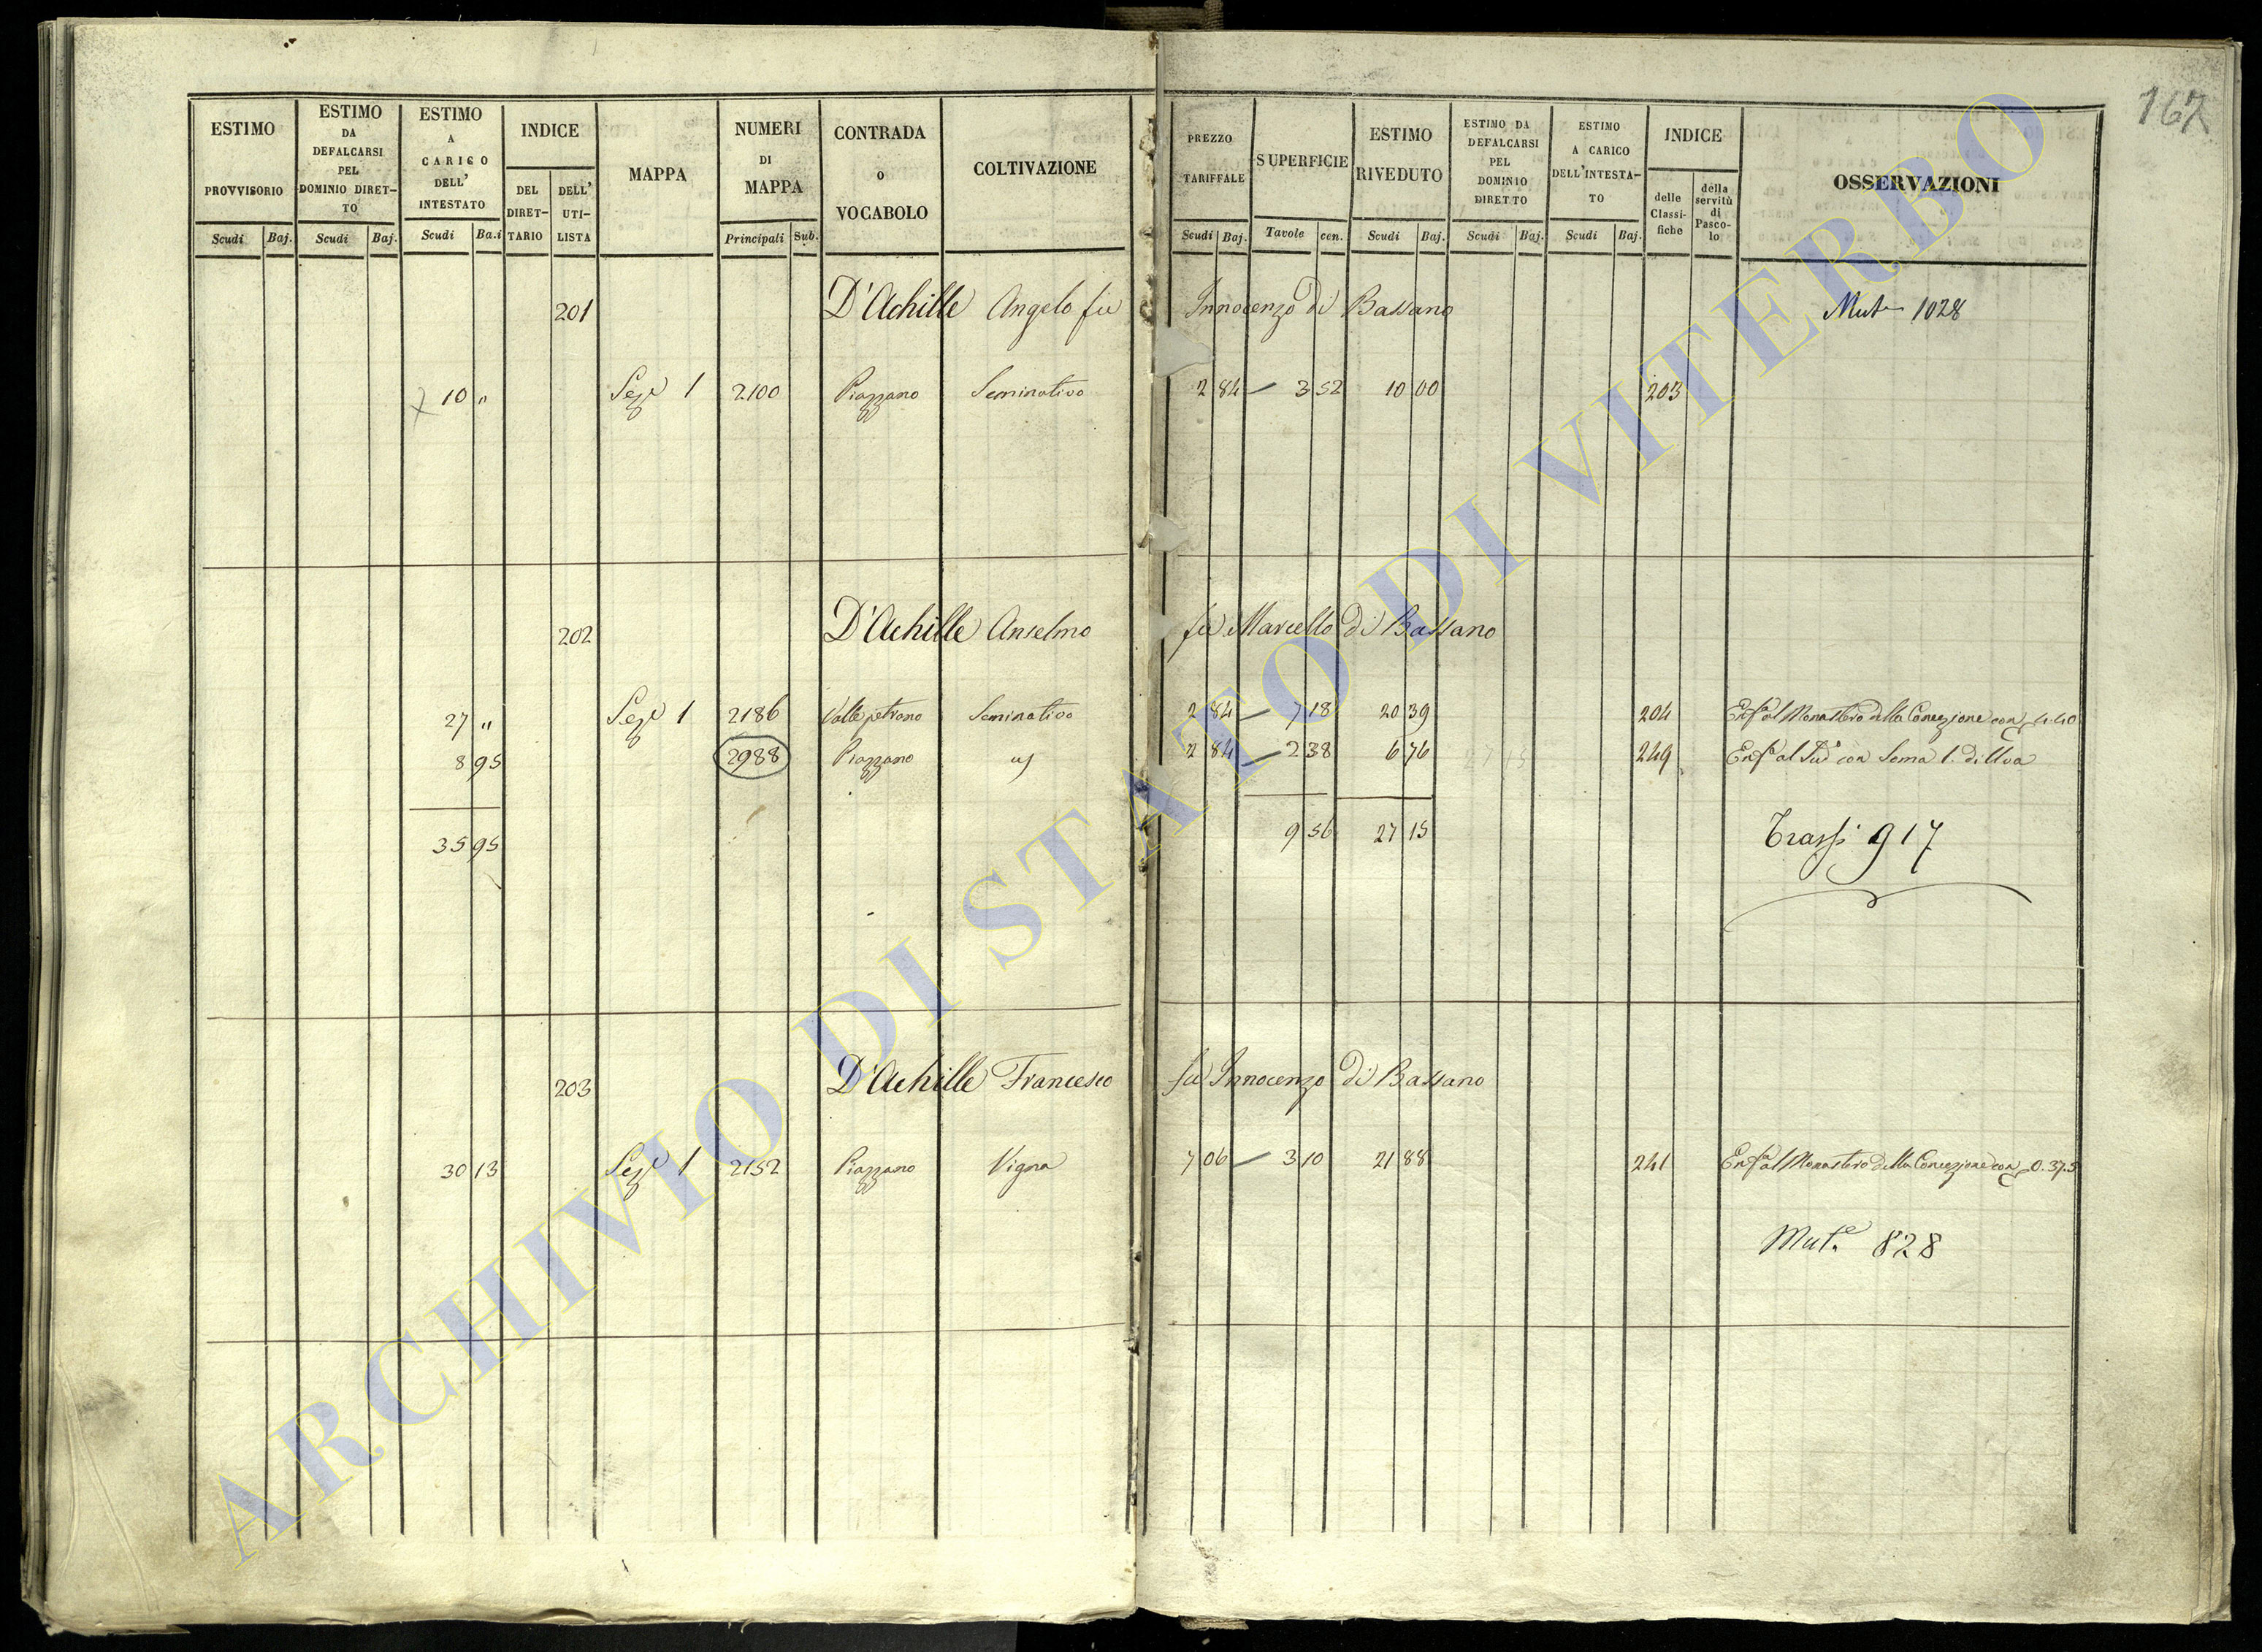 167
ESTIMO PROVVISORIO Scudi Baj.
ESTIMO DA DEFALCARSI PEL DOMINIO DIRET-TO Scudi Baj.
ESTIMO A CARICO DELL' INTESTATO Scudi Ba.i
INDICE DEL DIRET-TARIO DELL' UTI-LISTA
MAPPA
NUMERI DI MAPPA Principali Sub.
CONTRADA O VOCABOLO
COLTIVAZIONE
PREZZO TARIFFALE Scudi Baj.
SUPERFICIE Tavole cen.
ESTIMO RIVEDUTO Scudi Baj.
ESTIMO DA DEFALCARSI PEL DOMINIO DIRETTO Scudi Baj.
ESTIMO A CARICO DELL'INTESTA-TO Scudi Baj.
INDICE delle Classi-fiche della servitù di Pasco-lo
OSSERVAZIONI
201 D'Achille Angelo fu Innocenzo di Bassano Mut 1028
10 " Sez 1 2100 Piazzano Seminativo 2 84 3 52 10 00 203
202 D'Achille Anselmo fu Marcello di Bassano
27 " Sez 1 2186 Valle petrono Seminativo 2 84 7 18 20 39 204 Enf al Monastero della Concezione con 4.40
8 95 2988 Piazzano 2 84 2 38 6 76 249 Enf al Sud con Soma 1. di Uva
35 95 9 56 27 15 Trassi 917
203 D'Achille Francesco fu Innocenzo di Bassano
30 13 Sez 1 2152 Piazzano Vigna 7 06 3 10 21 88 241 Enf al Monastero della Concezione con 0.37.5
Mut.e 828
ARCHIVIO DI STATO DI VITERBO